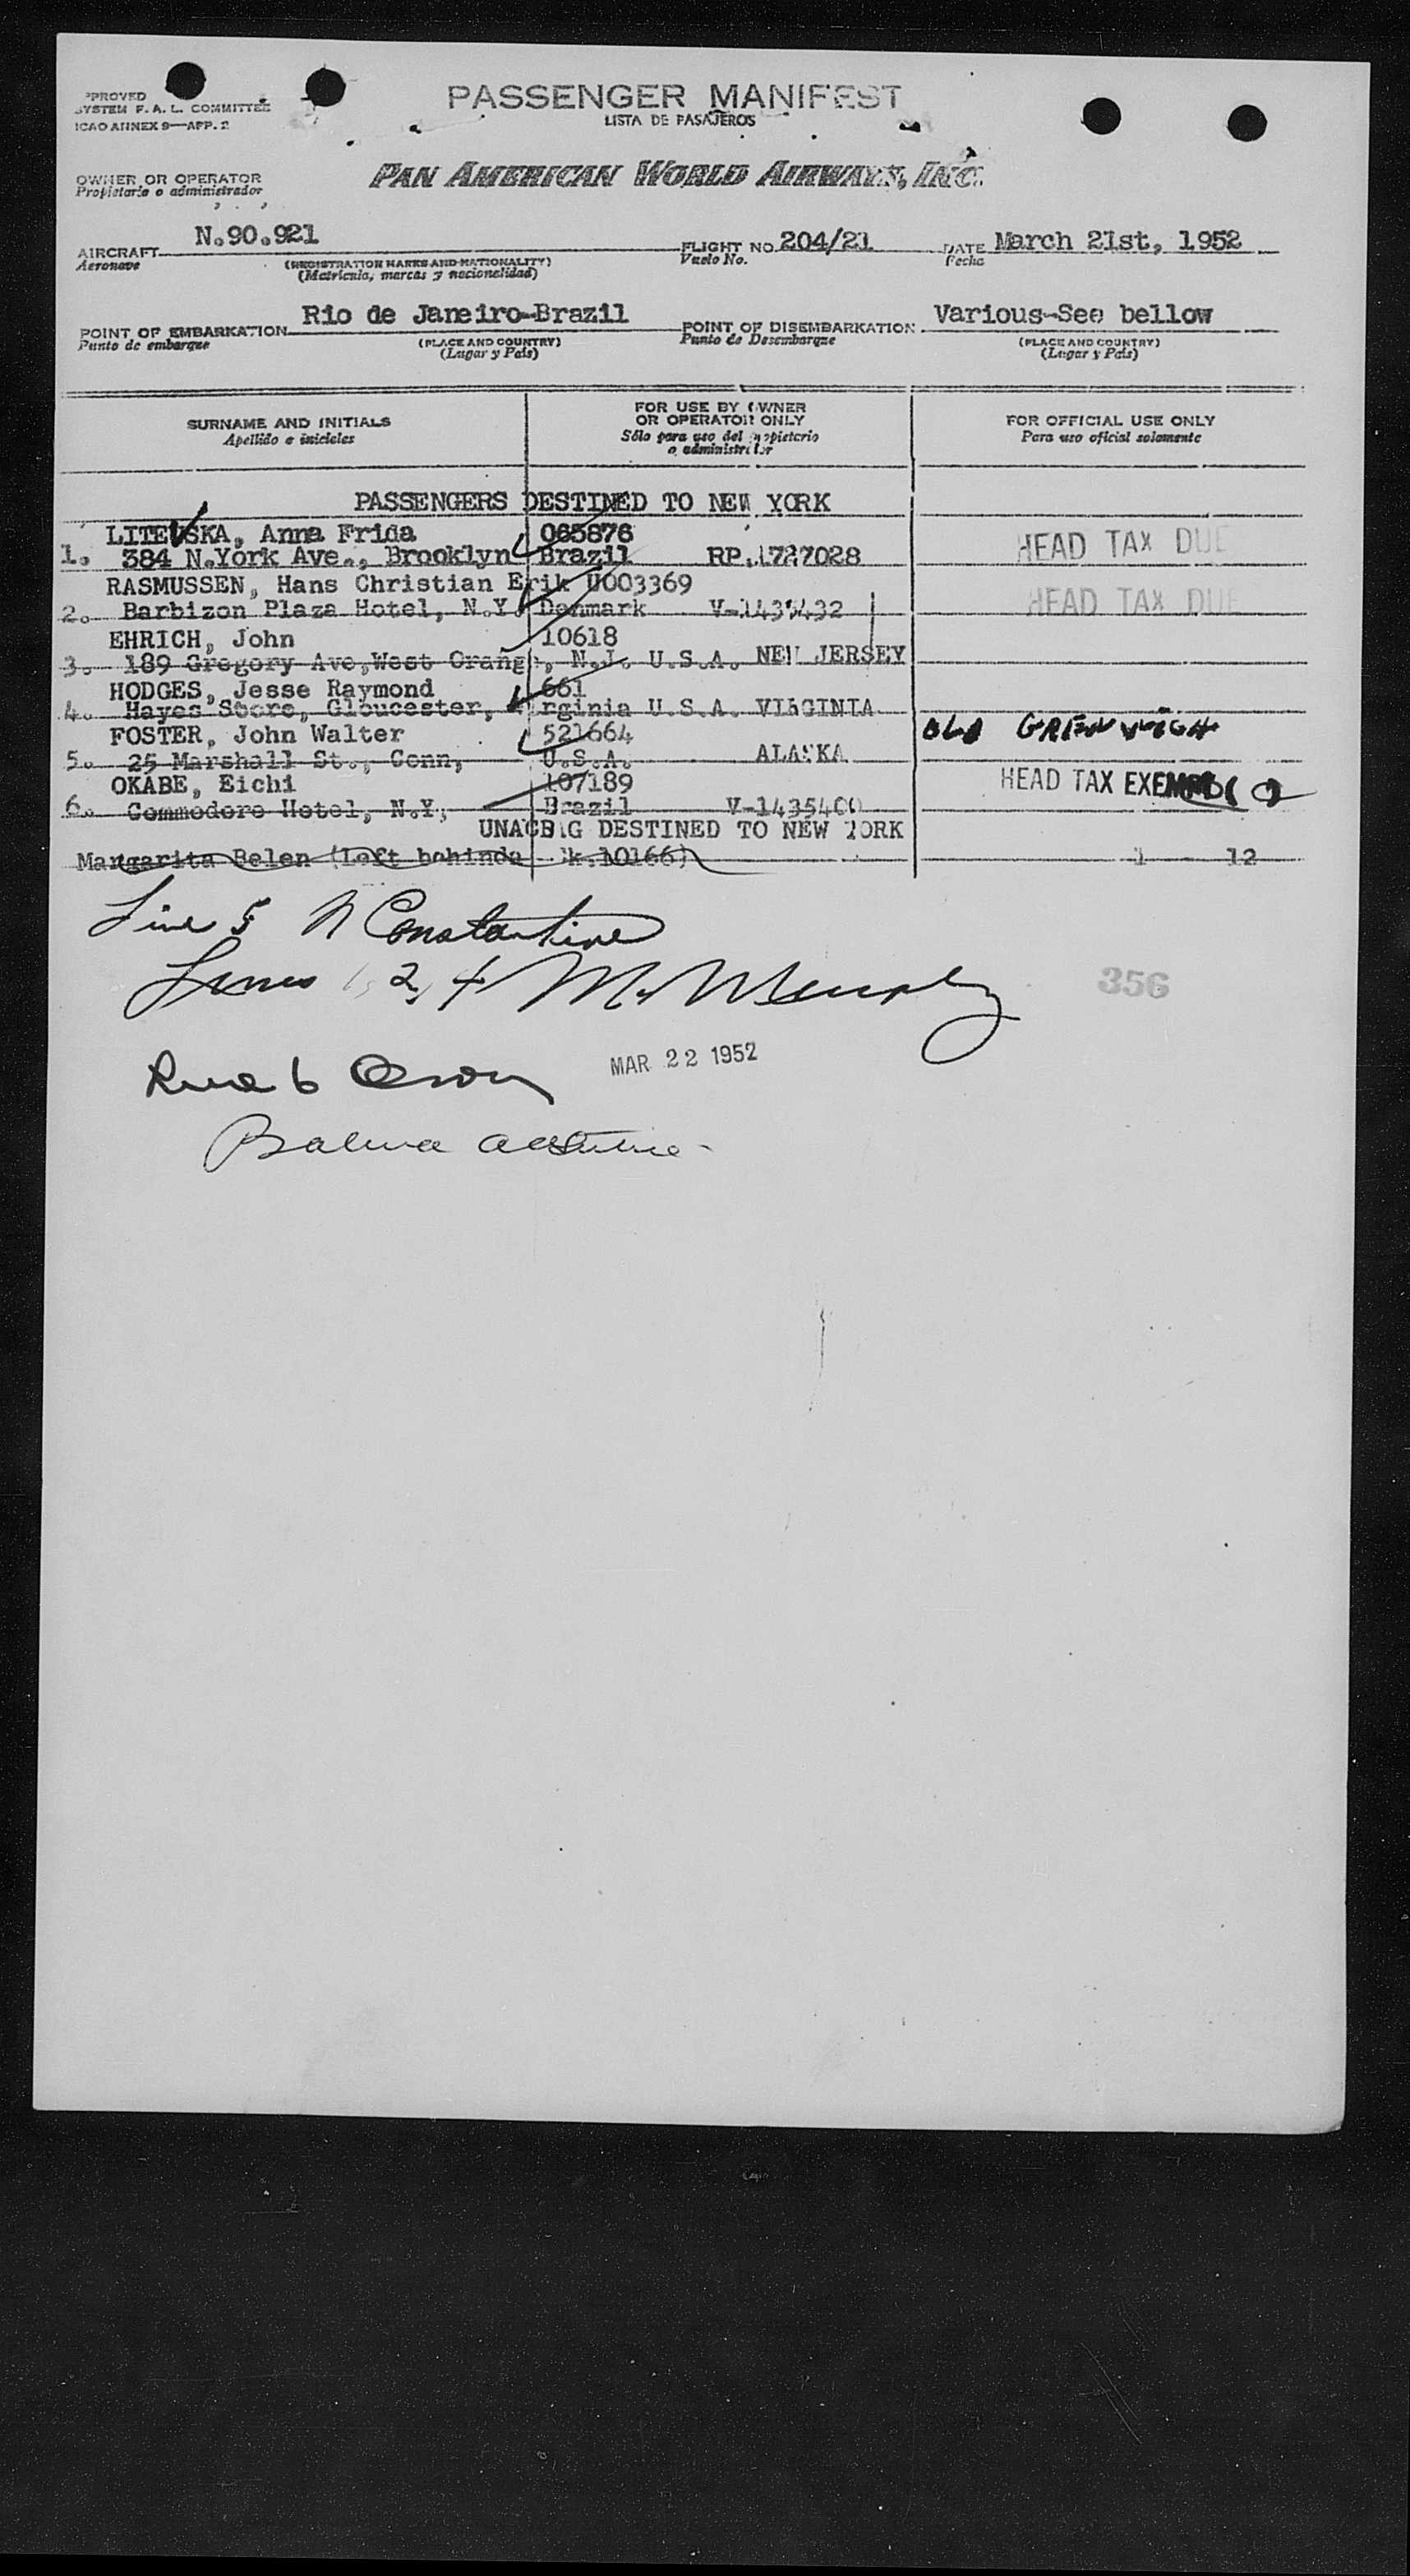 PASSENGER MANIFEST
LISTA DE PASAJEROS
SYSTEM F. A. L. COMMITTEE
ICAO ANNEX 9—APP. 2
OWNER OR OPERATOR
Propietario o administrador
PAN AMERICAN WORLD AIRWAYS, INC.
AIRCRAFT N.90.921 FLIGHT NO. 204/21 DATE March 21st, 1952
Aeronave (REGISTRATION MARKS AND NATIONALITY) Vuelo No. Fecha
(Matrícula, marcas y nacionalidad)
POINT OF EMBARKATION Rio de Janeiro-Brazil POINT OF DISEMBARKATION Various-See bellow
Punto de embarque (PLACE AND COUNTRY) Punto de Desembarque (PLACE AND COUNTRY)
(Lugar y País) (Lugar y País)
SURNAME AND INITIALS FOR USE BY OWNER OR OPERATOR ONLY FOR OFFICIAL USE ONLY
Apellido e iniciales Sólo para uso del propietario o administrador Para uso oficial solamente
PASSENGERS DESTINED TO NEW YORK
LITEVSKA, Anna Frida 065876
1. 384 N.York Ave., Brooklyn Brazil RP.1727028 HEAD TAX DUE
RASMUSSEN, Hans Christian Erik U003369
2. Barbizon Plaza Hotel, N.Y. Denmark HEAD TAX DUE
EHRICH, John 10618
3. 189 Gregory Ave,West Orange, N.J. U.S.A. NEW JERSEY
HODGES, Jesse Raymond 661
4. Hayes Store, Gloucester, Virginia U.S.A. VIRGINIA
FOSTER, John Walter 521664 OLD GREENWICH
5. 25 Marshall St., Conn, U.S.A. ALASKA
OKABE, Eichi 107189 HEAD TAX EXEMPT
6. Commodore Hotel, N.Y, Brazil V-1435400
UNACBAG DESTINED TO NEW YORK
Margarita Belen (Left behinda k.10166) 1 12
Line 5 N Constantine
Lines 1, 2, 4 M. Murphy
356
MAR 22 1952
Line 6